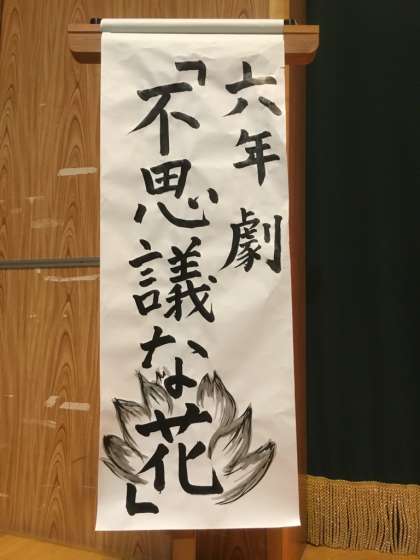 六年 劇
「不思議な花」